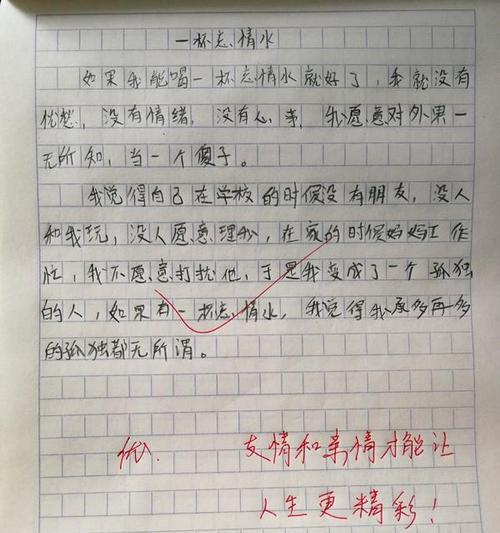 一杯忘情水
如果我能喝一杯忘情水就好了，我就没有
忧愁，没有情绪，没有心事，我愿意对外界一
无所知，当一个傻子。
我觉得自己在学校的时候没有朋友，没人
和我玩，没人愿意理我，在家的时候妈妈工作
忙，我不愿意打扰他，于是我变成了一个孤独
的人，如果有一杯忘情水，我觉得我承多再多
的孤独都无所谓。
优.
友情和亲情才能让
人生更精彩！